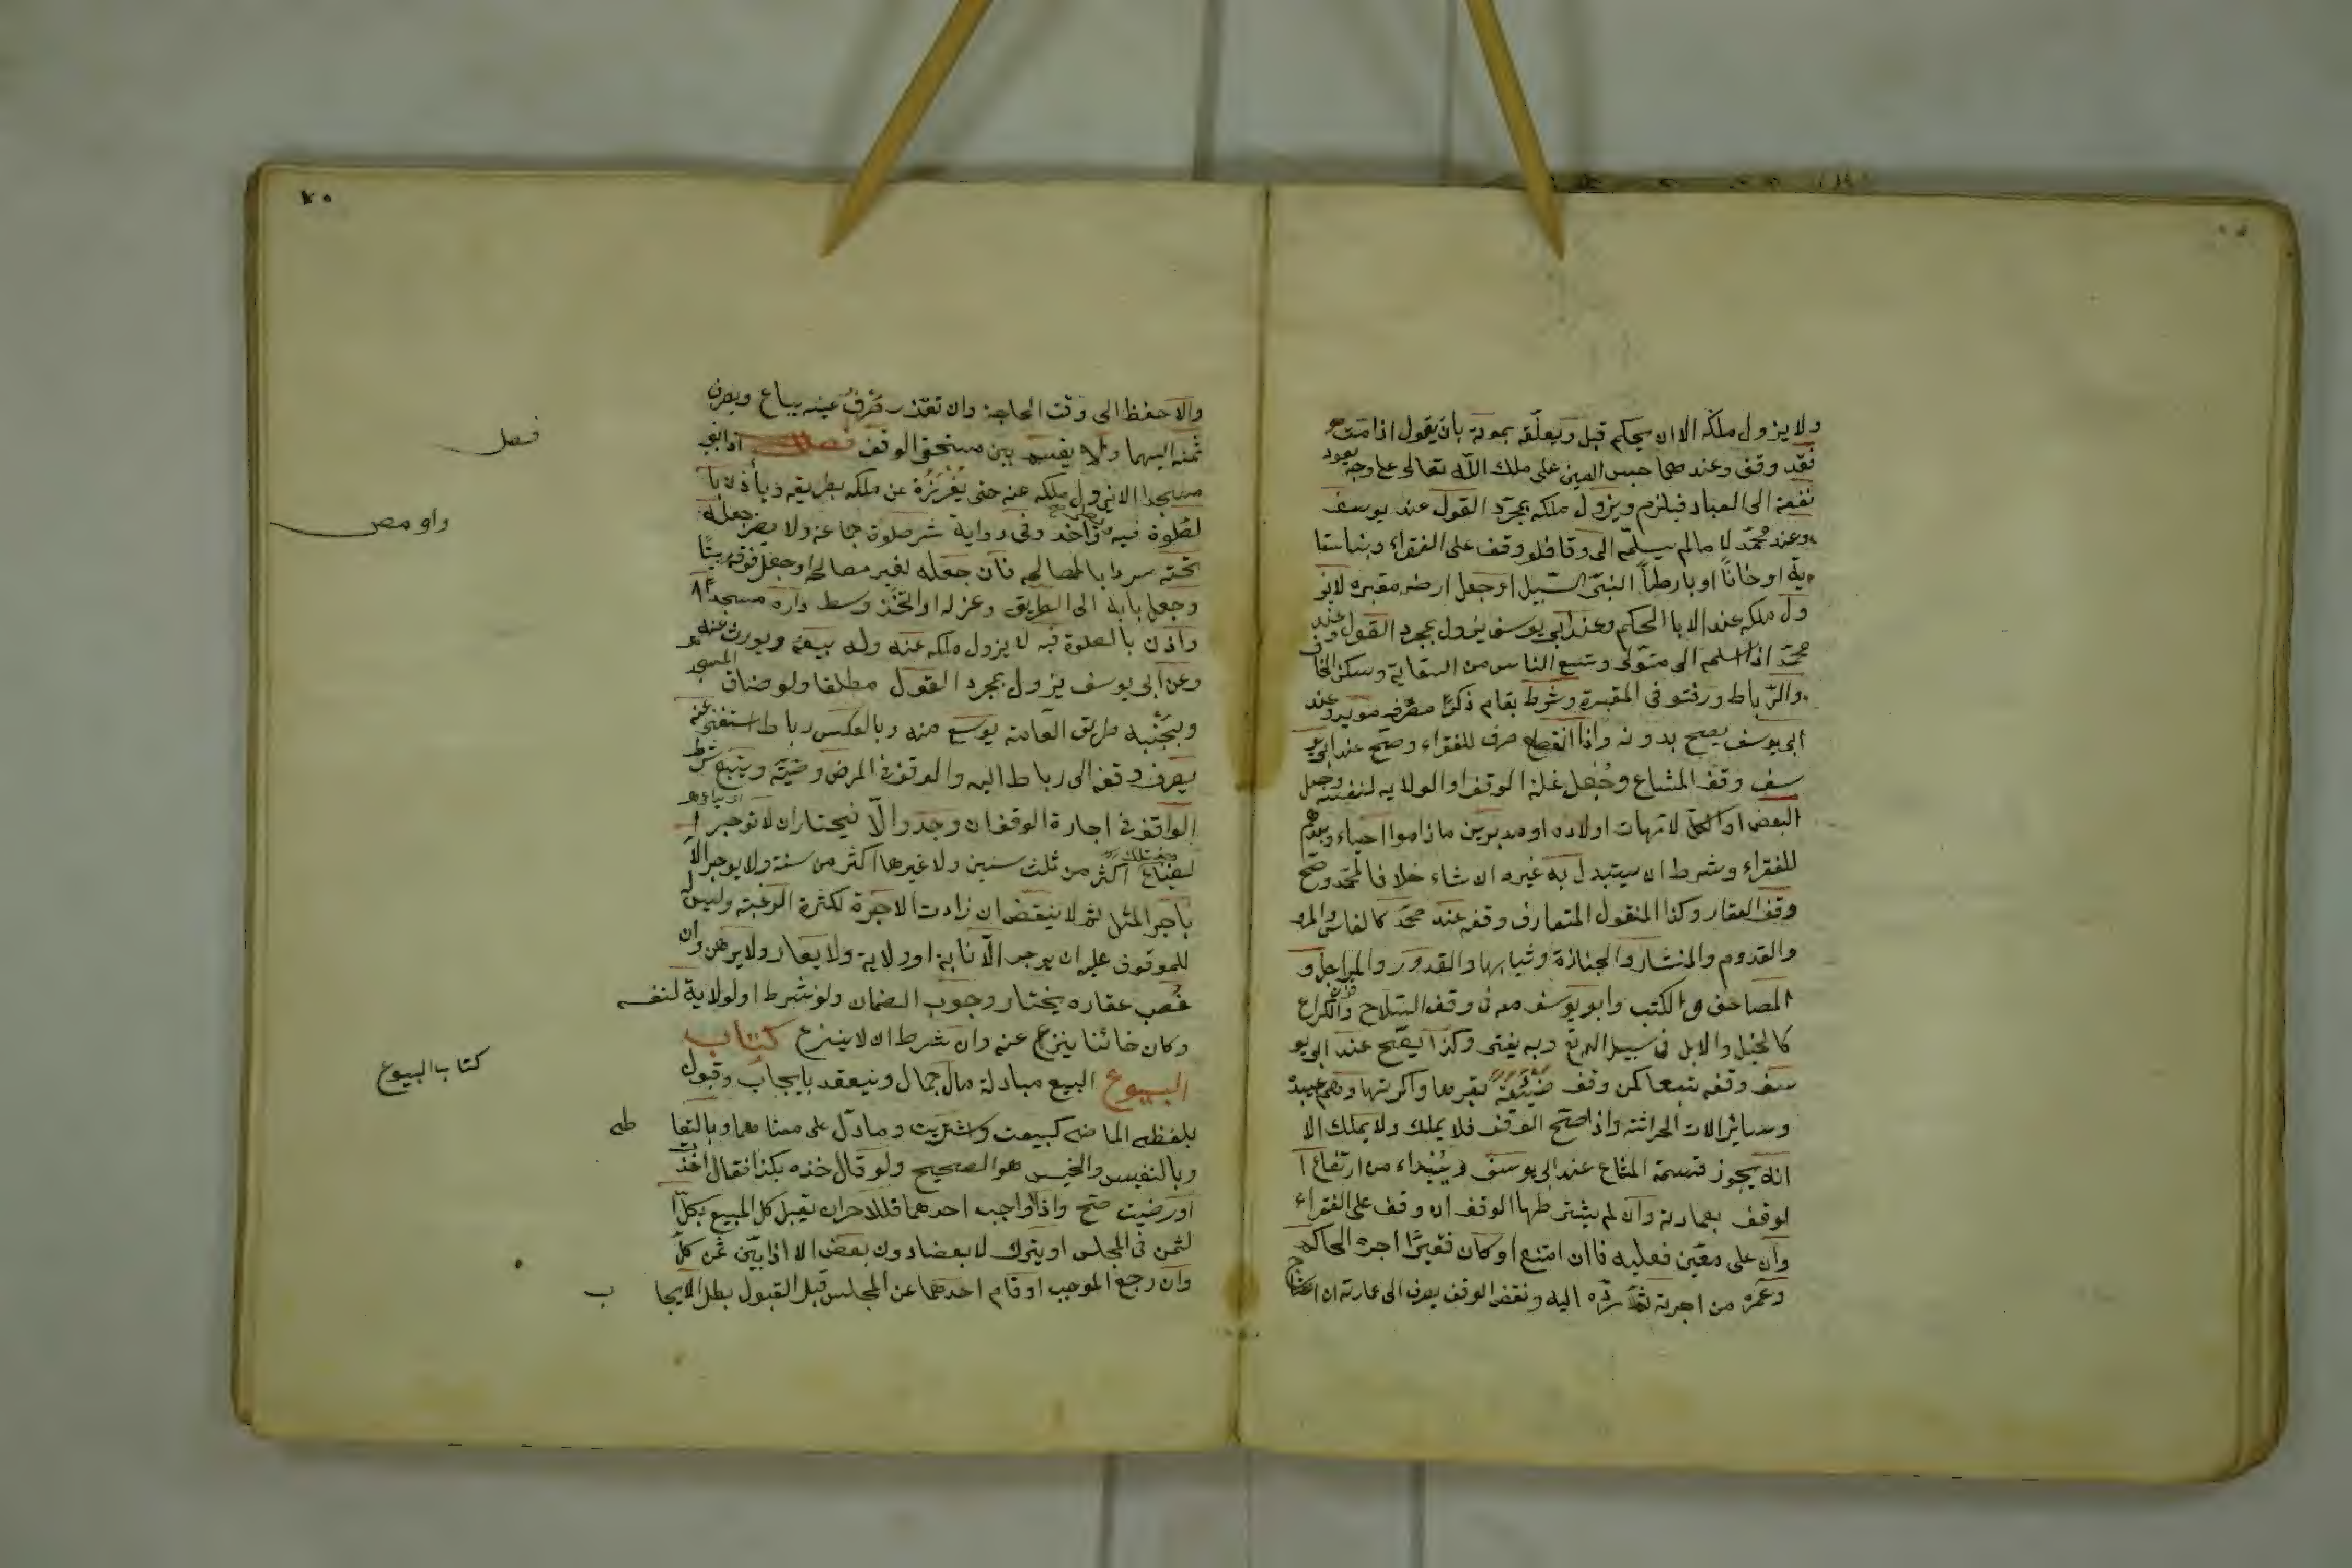 ولا يزول ملكه الا ان يحكم قبل وبعلّقه بموته بان يقول اذا مت
فقد وقف وعندهما حبس العين على ملك اللّه تعالى على وجه يعود
نفعه الى العباد فيلزم ويزول ملكه بمجرّد القول عند يوسف
وعند محمّد لا مالم يسلّمه الى وقا فلو وقف على الفقراء وبنا سقا
ية اوخانًا او بارطاً البنى السّبيل او جعل ارضه مقبره لايز
ول ملكه عنه الا با الحكم وعند ابى يوسف يزول بمجرد القول عند
محمّد اذا اسلمه الى متولى وشبع الناس من السقاية وسكن الخا
والرّباط ودفنو فى المقبرة وشرط بقام ذكر مصرف مويد وعند
ابى يوسف يصح بدونه واذا انقطع صرف للفقراء وصحّ عند ابى يو
سف وقف المشاع وجعل غلة الوقف او الولايه لنفسه وجعل
البعض او الكل لامهات اولاده او مدبرين ماداموا احياء وبعدهم
للفقراء وشرط ان يستبدل به غيره ان شاء خلافا لمحمّد وصحّ
وقف العقار وكذا المنقول المتعارف وقفه عند محمّد كالفاس والمر
والقدوم والمنشار والجنازة وثيابها والقدور والمراجل و
المصاحف والكتب وابو يوسف معه فى وقف السّلاح والكراع
كالخيل والابل فى سبيل اللّه تع وبه يفتى وكذا يصحّ عند ابى يو
سف وقفه تبعا كمن وقف ضيعة ببقرها واكرتها وهم عبيده
وسائر الات الحراثته واذا صحّ الوقف فلا يملك ولا يملك الا
انه يجوز قسمة المشاع عند ابى يوسف ويبتداء من ارتفاع ا
لوقف بعمارته وان لم يشترطها الوقف ان وقف على الفقراء
وان على معّين فعليه فاان امتنع او كان فقيرًا اجره الحاكم
وعمّره من اجرته ثمّ ردّه اليه ونقض الوقف يصرف الى عمارته ان احتاج
والا حفظ الى وقت الحاجة وان تعذر صرف عينه يباع ويصرف
ثمنه اليهما ولا يقسم بين مستحق الوقف فصل اذا بنى
مسجدا لايزول ملكه عنه حتى يفرزه عن ملكه بطريقه ويأذن با
لصلوة فيه وفى رواية شرصلوة جماعة ولا يضر جعله
تحته سردابا لمصالحه فان جعله لغير مصالحه او جعل فوقه بيتًا
وجعل بابه الى الطريق وعزله او اتخذ وسط داره مسجدا
واذن بالصلوة فيه لا يزول ملكه عنه وله بيعه ويورث عنه
وعن ابى يوسف يزول بمجرد القول مطلقا ولو ضاق المسجد
وبجنبه طريق العامة يوسع منه وبالعكس رباط استغنى عنه
يصرف وقفه الى رباط اليه والوقف فى المرض وضيّه ويتبع شرط
الواقف فى اجارة الوقف ان وجد والّا فيختار ان لا توجر ا
لضياع اكثر من ثلث سنين ولا غيرها اكثر من سنة ولا يوجر الا
باجر المثل ثم لا ينقض ان زادت الاجرة لكثرة الرغبة وليس
للموقوف عليه ان يوجر الّا نابة او ولاية ولا يعار ولا يرهن وان
غصب عقاره يختار وجوب الضمان ولو شرط اولولاية لنفسه
وكان خائنا ينزع عنه وان شرط ان لا ينزع كتاب
البيوع البيع مبادلة مال بمال وينعقد بايجاب وقبول
بلفظه الماضى كبيعت واشتريت ومادلّ على معناهما وبالتعا
طى
وبالنفيس والخيس هوالصحيح ولو قال خذه بكذا فقال اخذت
او رضيت صحّ واذا اواجب احدهما فللاخر ان يقبل كل المبيع بكل ا
لثمن فى المجلس او يترك لا بعضا دون بعض الا اذا بيّن ثمن كلّ
وان رجع الموجب او قام احدهما عن المجلس قبل القبول بطل الايجا
ب
فصل
واو مصر
كتاب البيوع